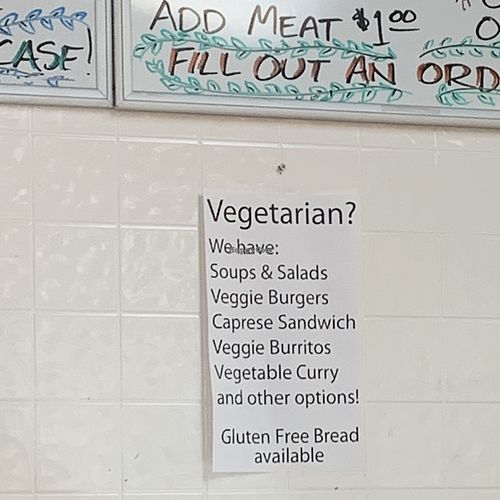 CASE!
ADD MEAT $1.00
FILL OUT AN ORD
Vegetarian?
We have:
Soups & Salads
Veggie Burgers
Caprese Sandwich
Veggie Burritos
Vegetable Curry
and other options!
Gluten Free Bread
available